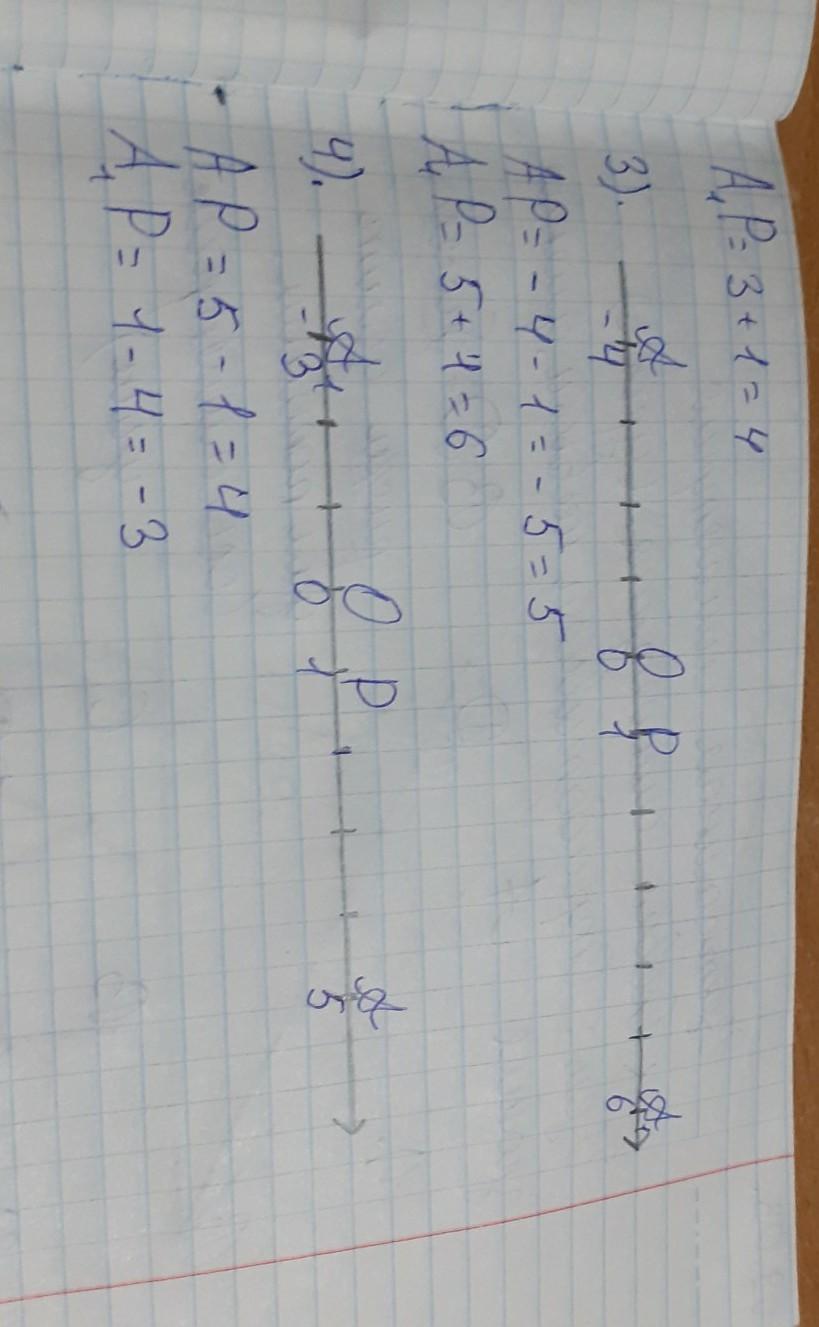 A₁P = 3 + 1 = 4
3).
A O P A₁
-4 0 1 6
AP = - 4 - 1 = - 5 = 5
A₁P = 5 + 1 = 6
4).
A₁ O P A
-3 0 1 5
AP = 5 - 1 = 4
A₁P = 1 - 4 = - 3